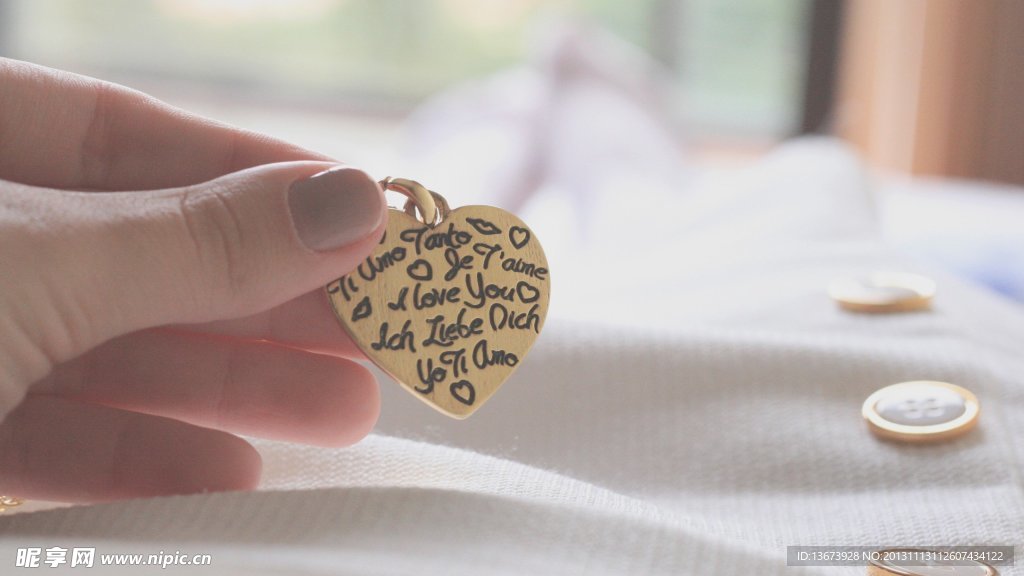 Ti Amo Tanto
Je T'aime
I love You
Ich Liebe Dich
Yo Ti Amo
昵享网 www.nipic.cn
ID:13673928 NO:20131113112607434122